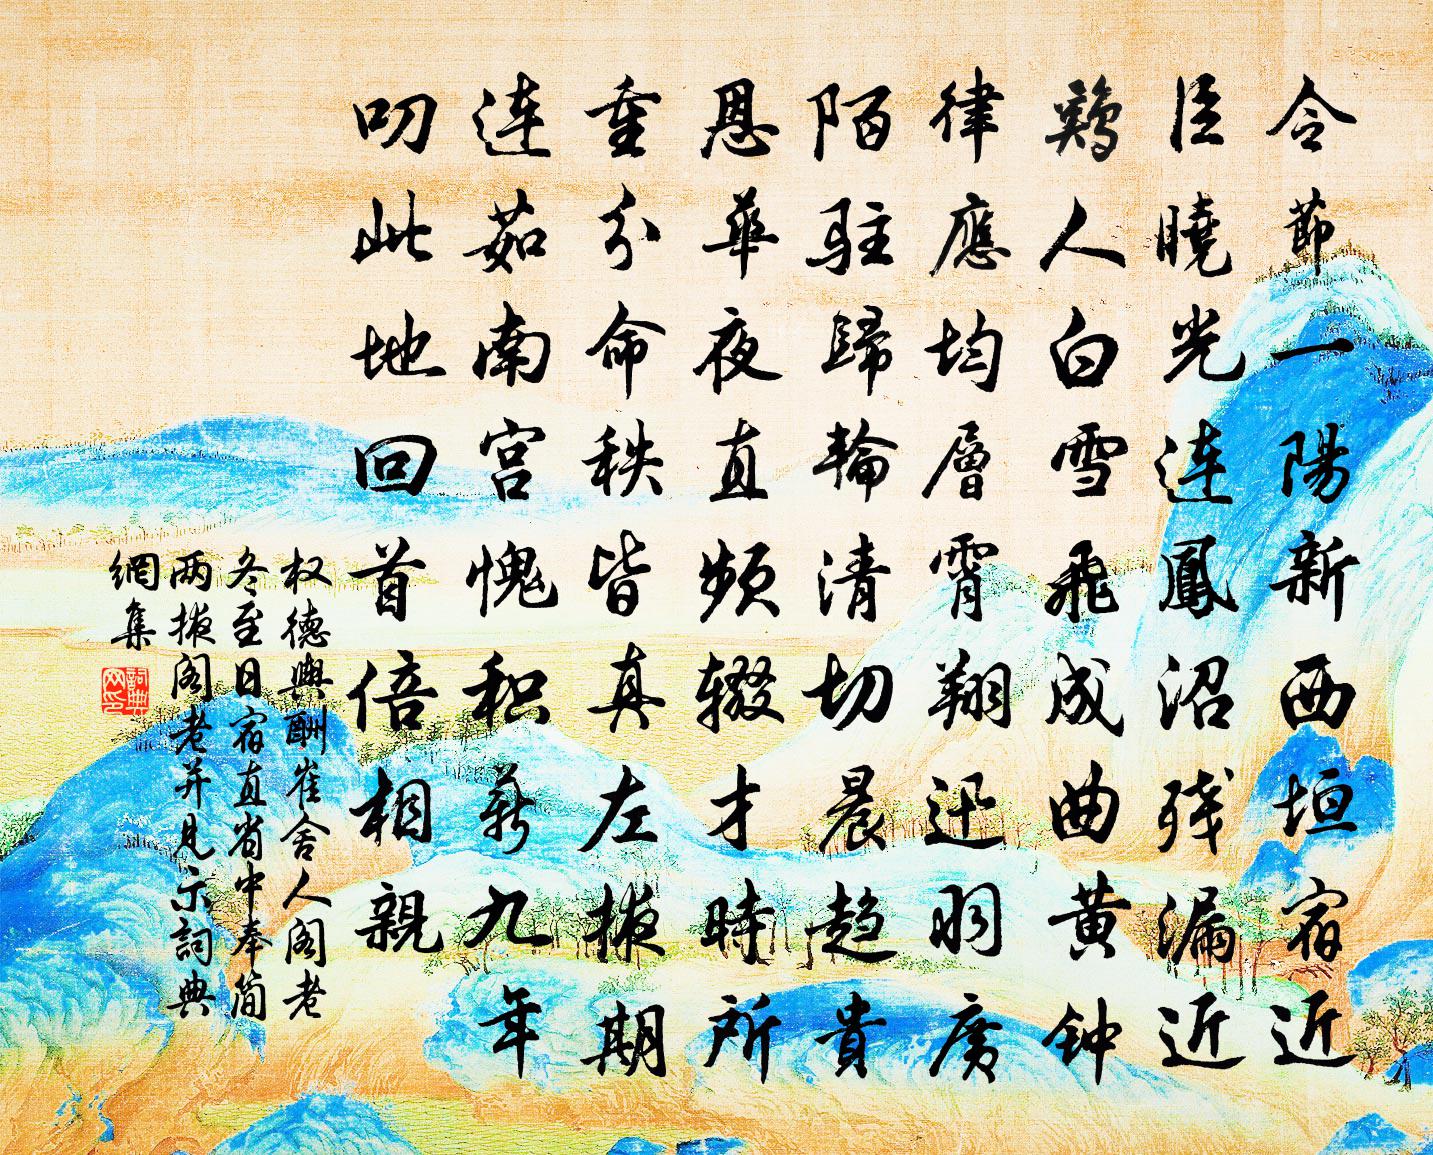 令節一陽新西垣宿近
臣曉光連鳳沼殘漏近
鷄人白雪飛成曲黄钟
律應均層霄翔迅羽廣
陌駐歸輪清切晨趋貴
恩華夜直頻辍才時所
重分命秩皆真左掖期
連茹南宫愧积薪九年
叨此地回首倍相親
权德輿酬崔舍人阁老
冬至日宿直省中奉简
两掖阁老并見示詞典
網集
詞典网印